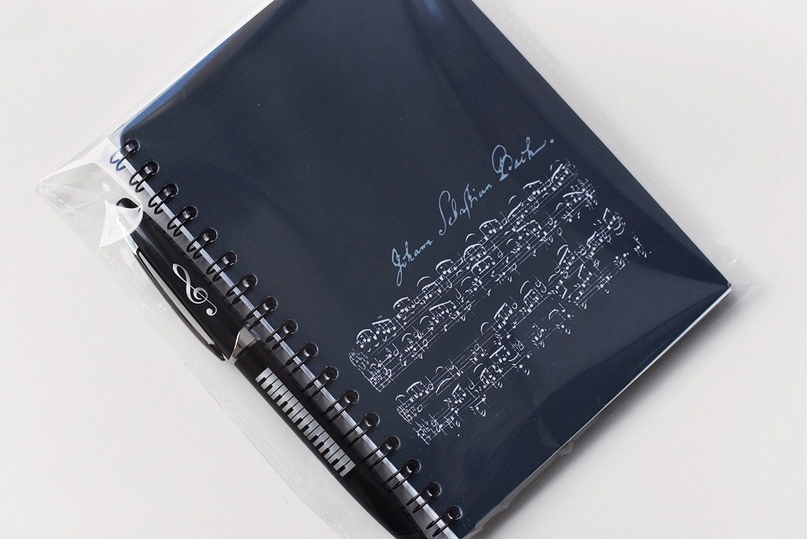 Johann Sebastian Bach.